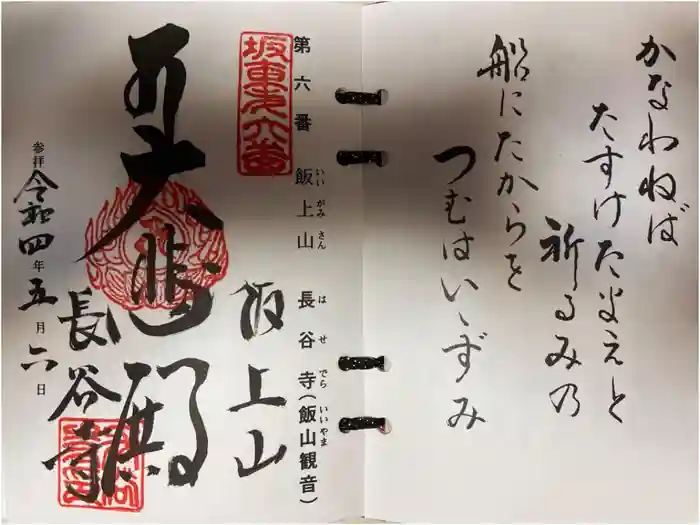 かなわねば
たすけたまえと
祈るみの
船にたからを
つむはいゝずみ
坂東第六番
第六番 飯上山 長谷寺(飯山観音)
いいがみさん はせでら いいやま
飯上山
大悲殿
長谷寺
参拝 令和四年五月六日